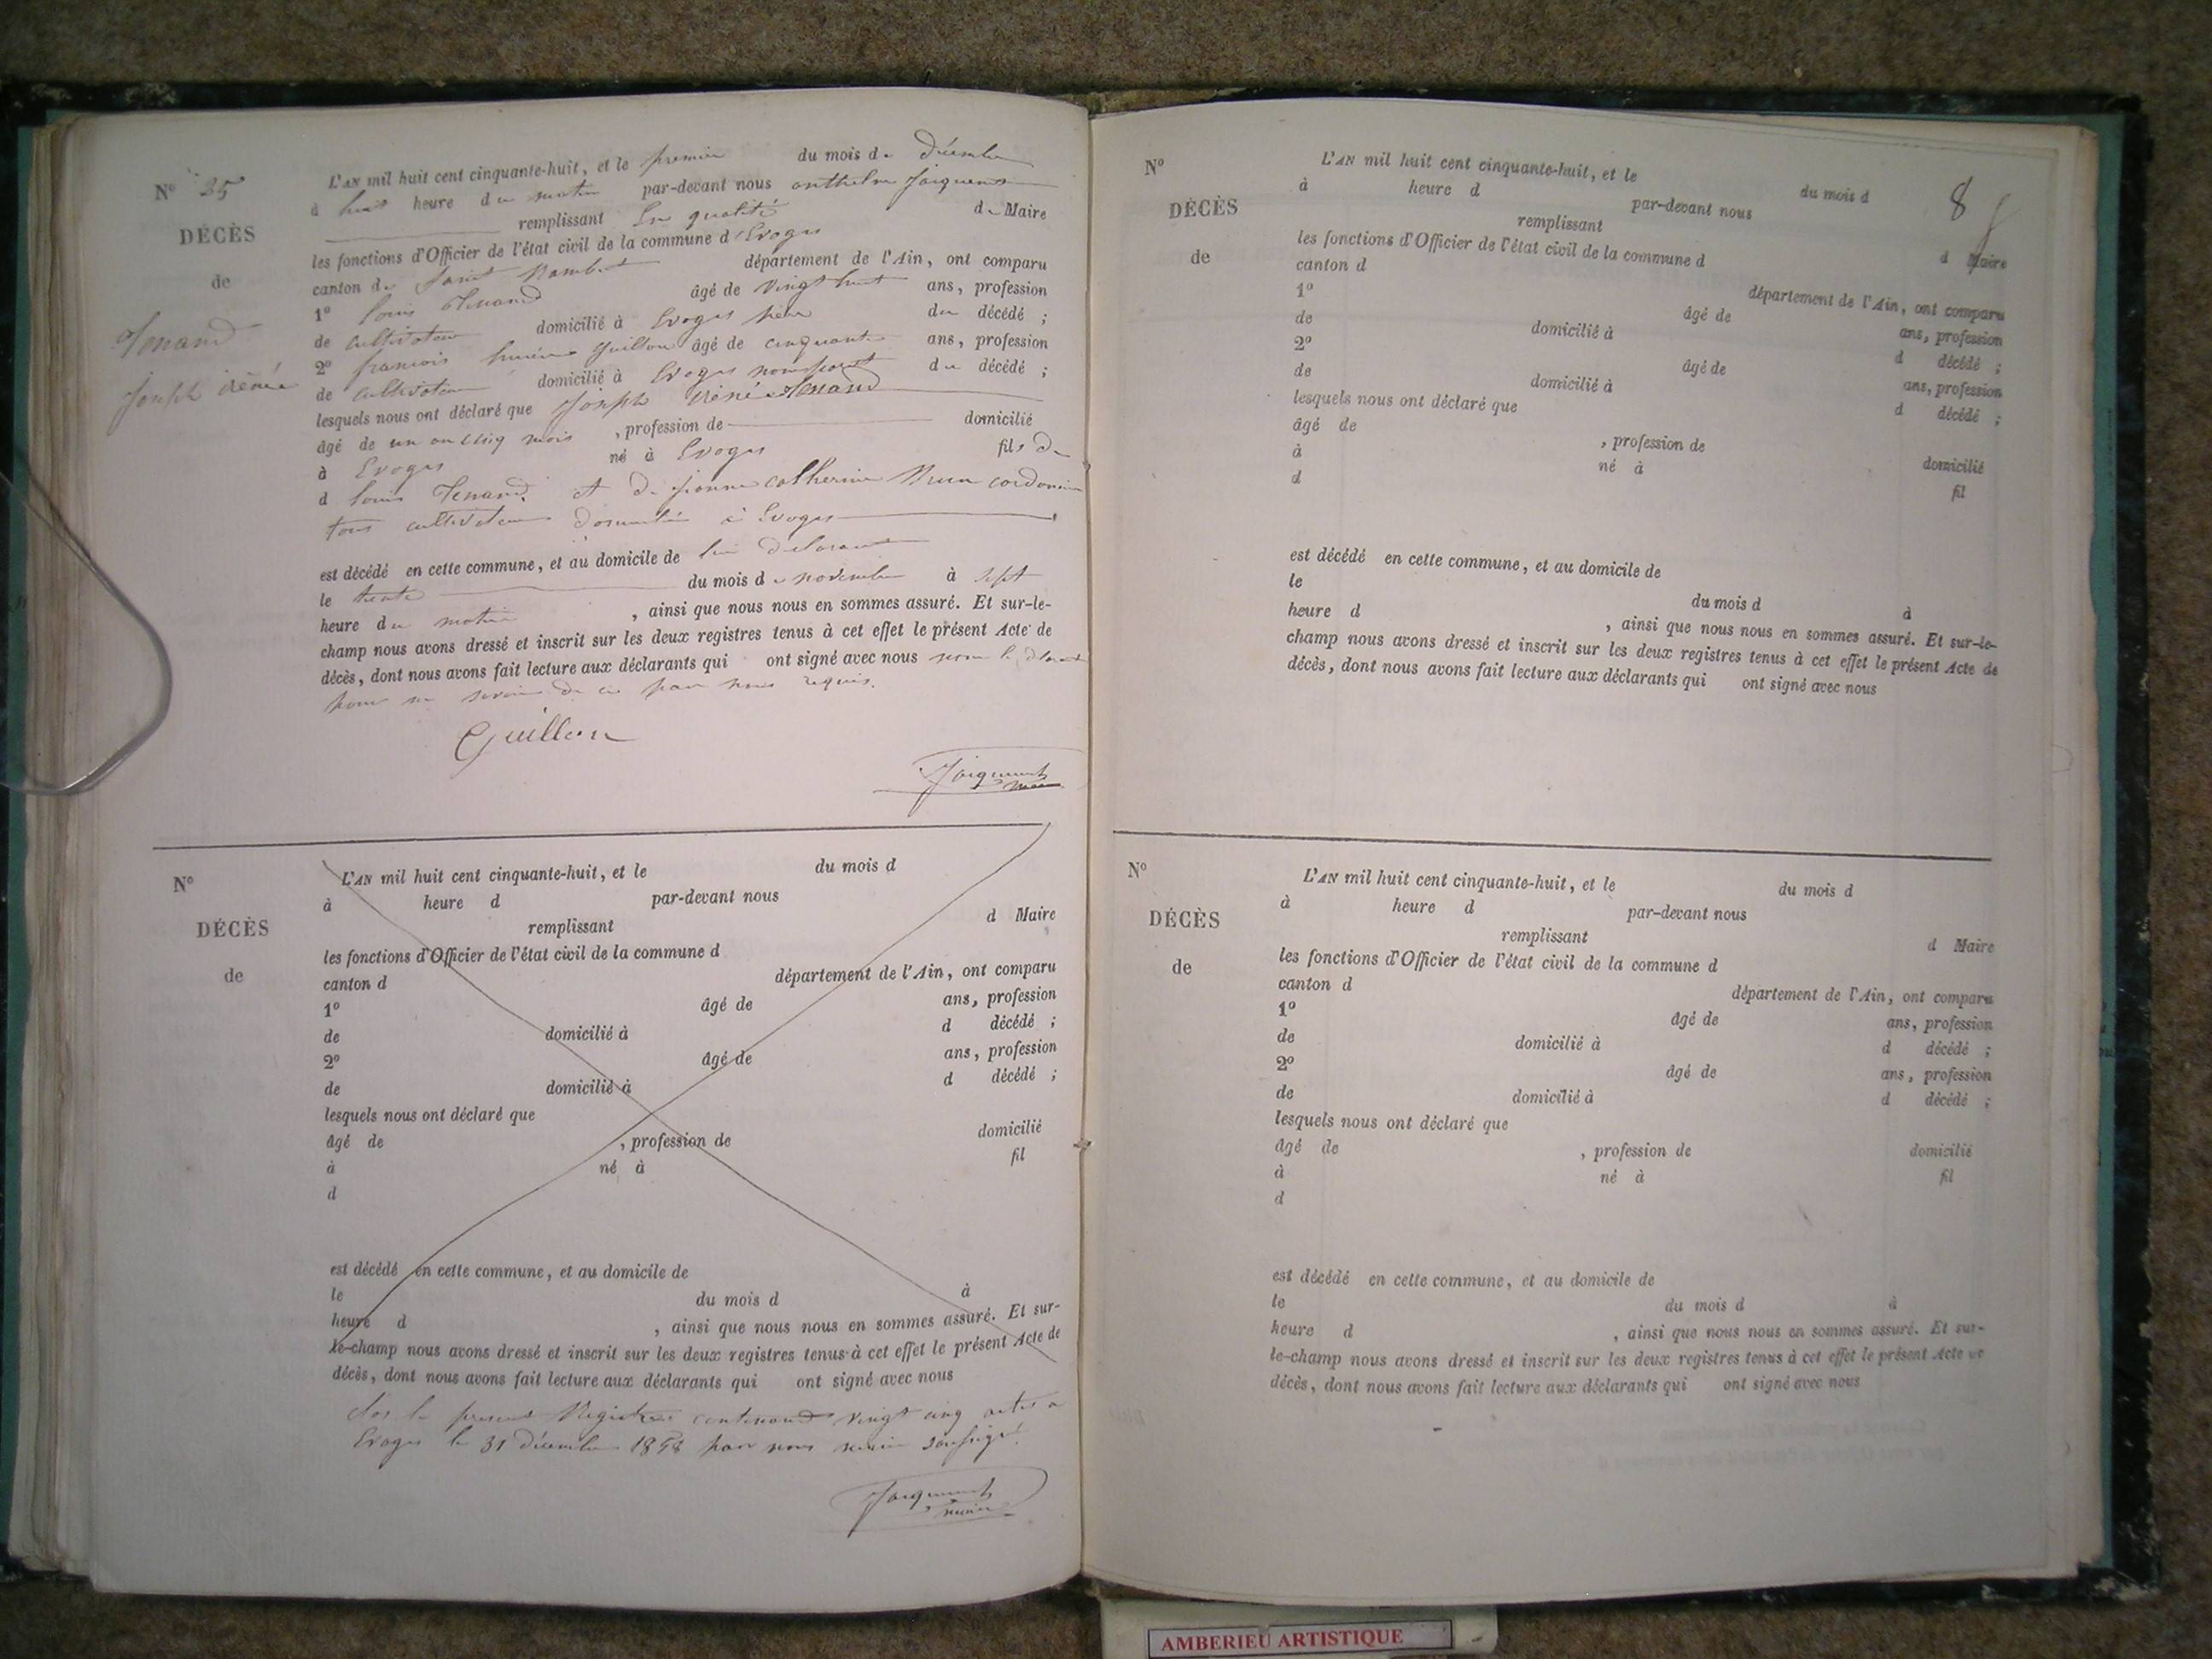 N° 25
DÉCÈS
de
Tenand
Joseph iréné
L'AN mil huit cent cinquante-huit, et le premier du mois de décembre
à huit heure du matin par-devant nous anthelme Jacquemet
remplissant En qualité de Maire
les fonctions d'Officier de l'état civil de la commune d'Evoges
canton de Saint Rambert département de l'Ain, ont comparu
1° Louis Tenand âgé de vingt huit ans, profession
de cultivateur domicilié à Evoges père du décédé ;
2° françois Guillon âgé de cinquante ans, profession
de cultivateur domicilié à Evoges non parent du décédé ;
lesquels nous ont déclaré que Joseph iréné Tenand
âgé de un an cinq mois , profession de domicilié
à Evoges né à Evoges fils de
d Louis Tenand et de jeanne catherine Brun cordonnier
tous cultivateurs domiciliés à Evoges
est décédé en cette commune, et au domicile de lui déclarant
le trente du mois de novembre à sept
heure du matin , ainsi que nous nous en sommes assuré. Et sur-le-
champ nous avons dressé et inscrit sur les deux registres tenus à cet effet le présent Acte de
décès, dont nous avons fait lecture aux déclarants qui ont signé avec nous non le
pour ne savoir de ce par nous requis.
Guillon
Jacquemet
maire
N°
DÉCÈS
de
L'AN mil huit cent cinquante-huit, et le du mois d
à heure d par-devant nous
remplissant d Maire
les fonctions d'Officier de l'état civil de la commune d
canton d département de l'Ain, ont comparu
1° âgé de ans, profession
de domicilié à d décédé ;
2° âgé de ans, profession
de domicilié à d décédé ;
lesquels nous ont déclaré que
âgé de , profession de domicilié
à né à fil
d
est décédé en cette commune, et au domicile de
le du mois d à
heure d , ainsi que nous nous en sommes assuré. Et sur-
le-champ nous avons dressé et inscrit sur les deux registres tenus à cet effet le présent Acte de
décès, dont nous avons fait lecture aux déclarants qui ont signé avec nous
Clos le present Registre contenant vingt cinq actes a
Evoges le 31 décembre 1858 par nous maire soussigné.
Jacquemet
maire
8
N°
DÉCÈS
de
L'AN mil huit cent cinquante-huit, et le du mois d
à heure d par-devant nous
remplissant d Maire
les fonctions d'Officier de l'état civil de la commune d
canton d département de l'Ain, ont comparu
1° âgé de ans, profession
de domicilié à d décédé ;
2° âgé de ans, profession
de domicilié à d décédé ;
lesquels nous ont déclaré que
âgé de , profession de domicilié
à né à fil
d
est décédé en cette commune, et au domicile de
le du mois d à
heure d , ainsi que nous nous en sommes assuré. Et sur-le-
champ nous avons dressé et inscrit sur les deux registres tenus à cet effet le présent Acte de
décès, dont nous avons fait lecture aux déclarants qui ont signé avec nous
N°
DÉCÈS
de
L'AN mil huit cent cinquante-huit, et le du mois d
à heure d par-devant nous
remplissant d Maire
les fonctions d'Officier de l'état civil de la commune d
canton d département de l'Ain, ont comparu
1° âgé de ans, profession
de domicilié à d décédé ;
2° âgé de ans, profession
de domicilié à d décédé ;
lesquels nous ont déclaré que
âgé de , profession de domicilié
à né à fil
d
est décédé en cette commune, et au domicile de
le du mois d à
heure d , ainsi que nous nous en sommes assuré. Et sur-
le-champ nous avons dressé et inscrit sur les deux registres tenus à cet effet le présent Acte de
décès, dont nous avons fait lecture aux déclarants qui ont signé avec nous
AMBERIEU ARTISTIQUE